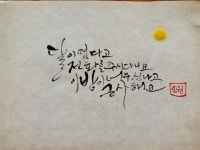 달이 떴다고
전화를 주시다니요
이 밤이 너무 신나고
근사해요